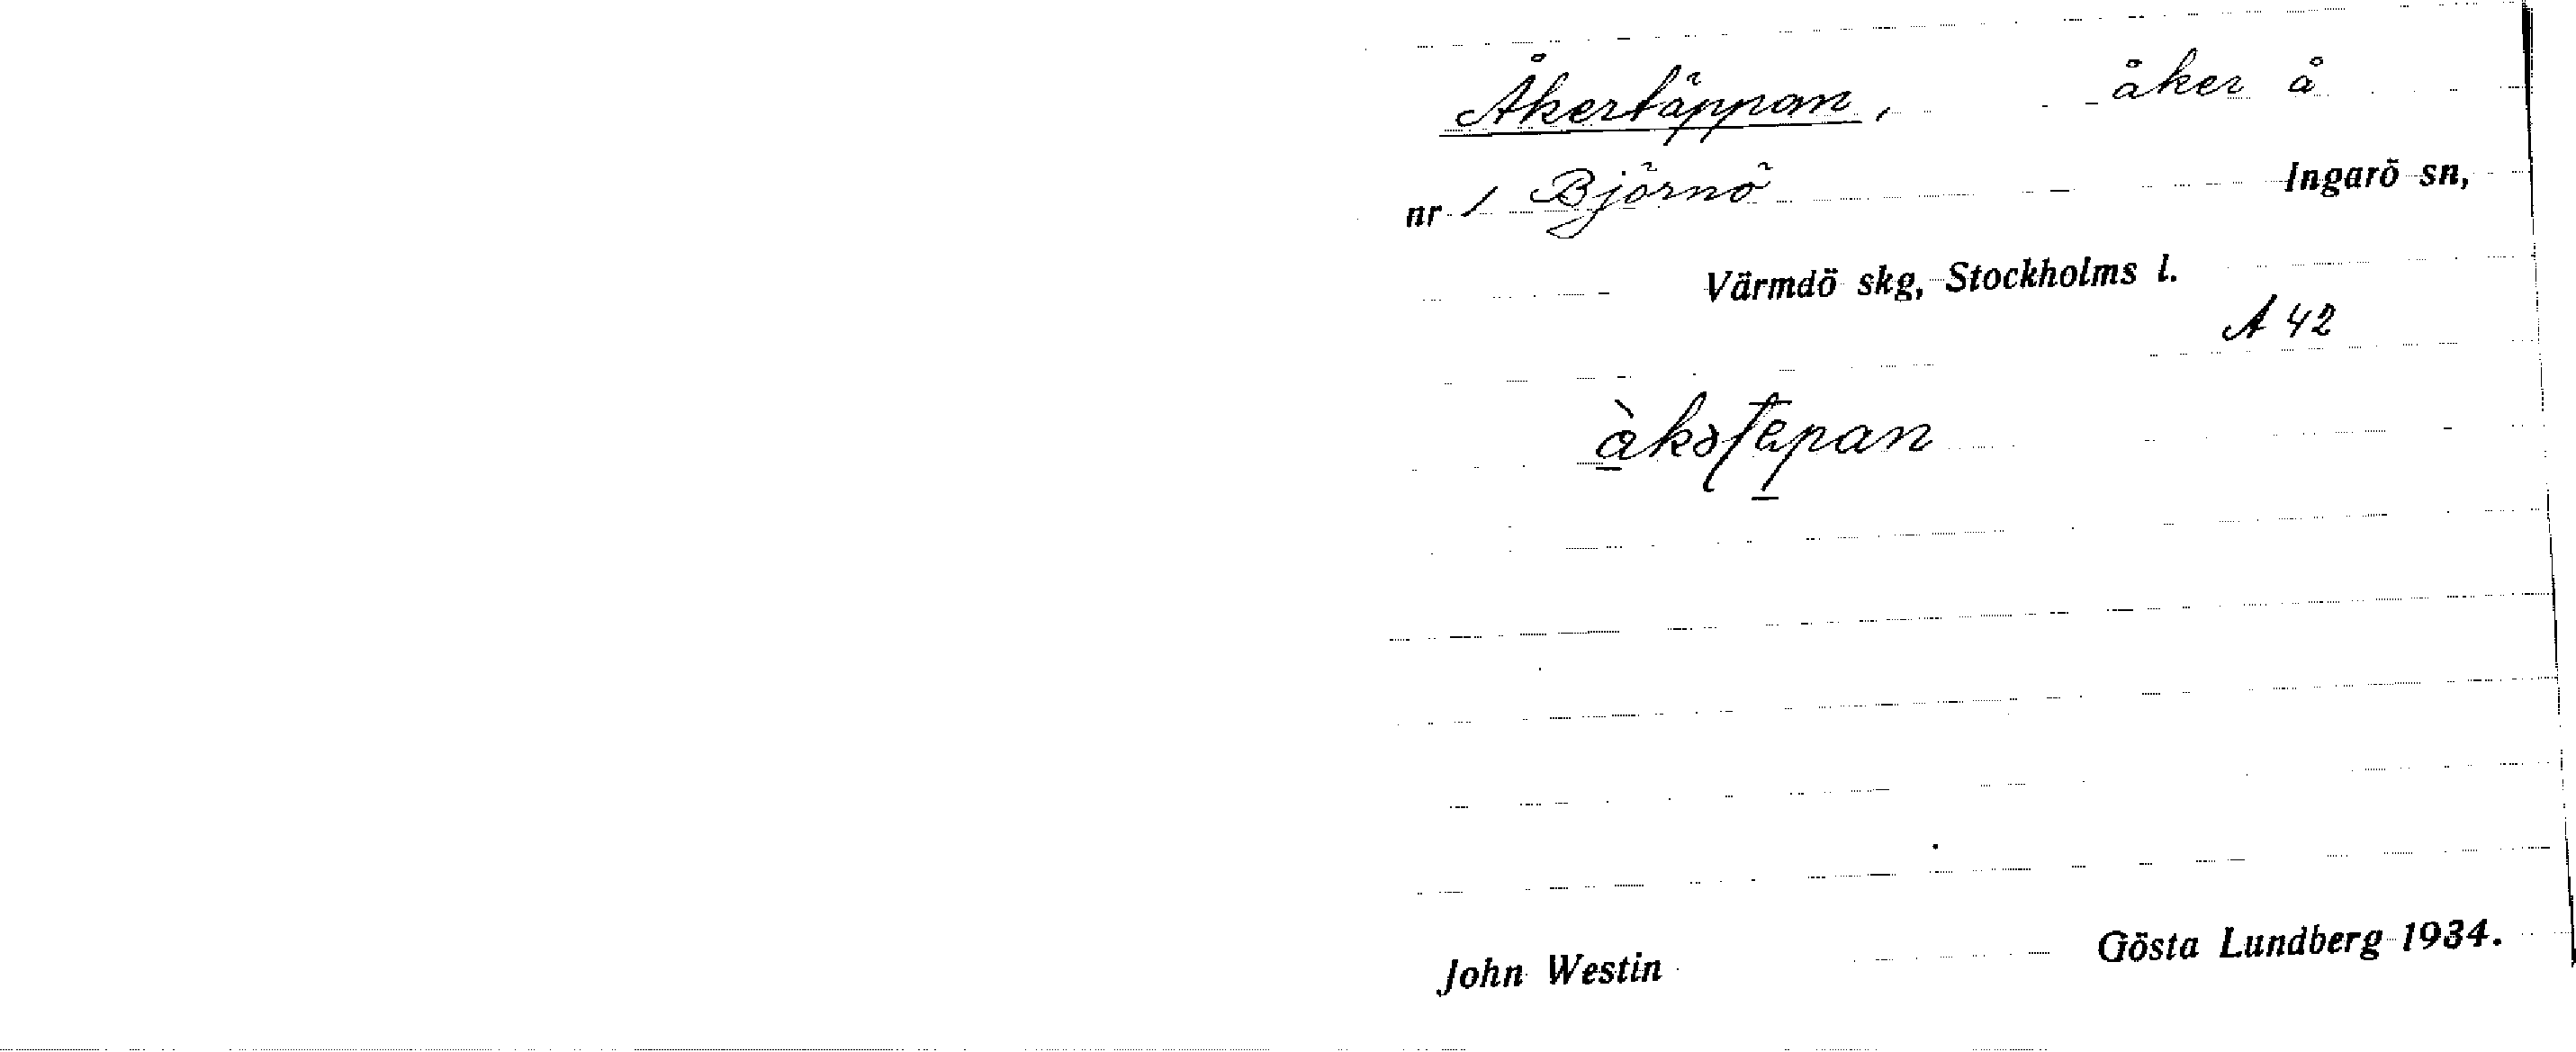 Åkertäppan, åker å
nr 1 Björnö Ingarö sn,
Värmdö skg, Stockholms l.
A 42
John Westin Gösta Lundberg 1934.